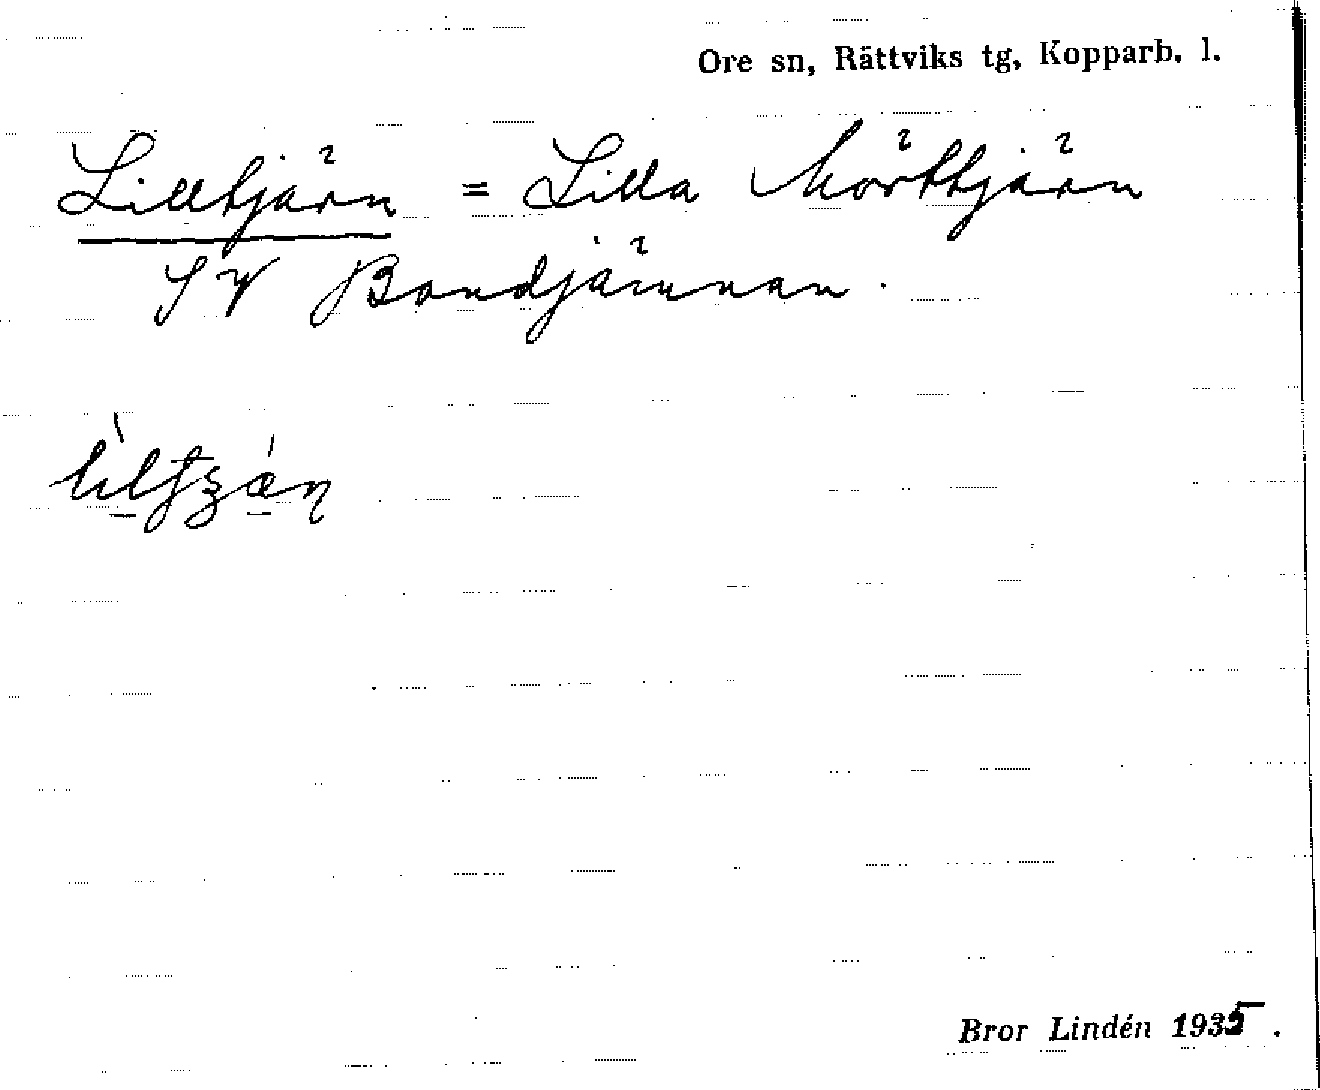 Ore sn, Rättviks tg, Kopparb. l.
Lilltjärn = Lilla Mörttjärn
SV Bondjärnnan.
Bror Lindén 1935.